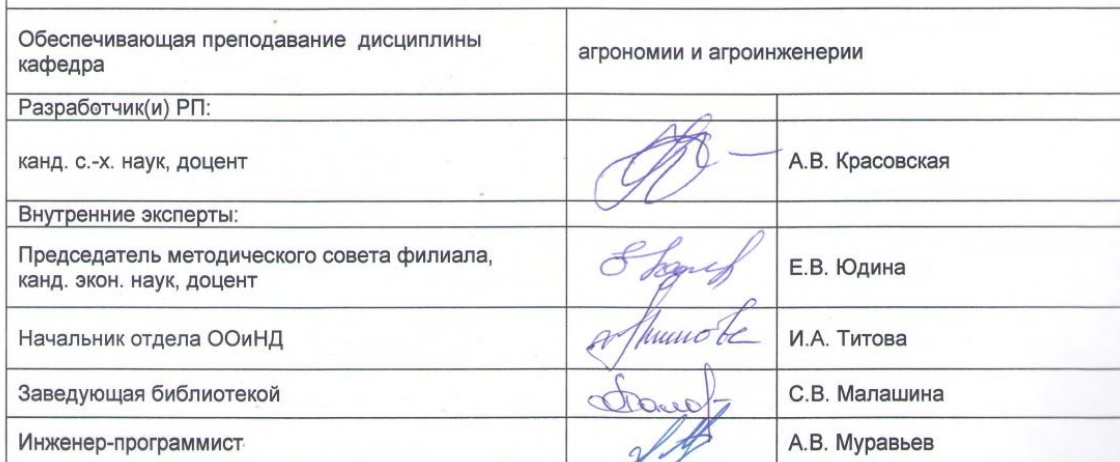 Обеспечивающая преподавание дисциплины
кафедра
агрономии и агроинженерии
Разработчик(и) РП:
канд. с.-х. наук, доцент
А.В. Красовская
Внутренние эксперты:
Председатель методического совета филиала,
канд. экон. наук, доцент
Е.В. Юдина
Начальник отдела ООиНД
И.А. Титова
Заведующая библиотекой
С.В. Малашина
Инженер-программист
А.В. Муравьев